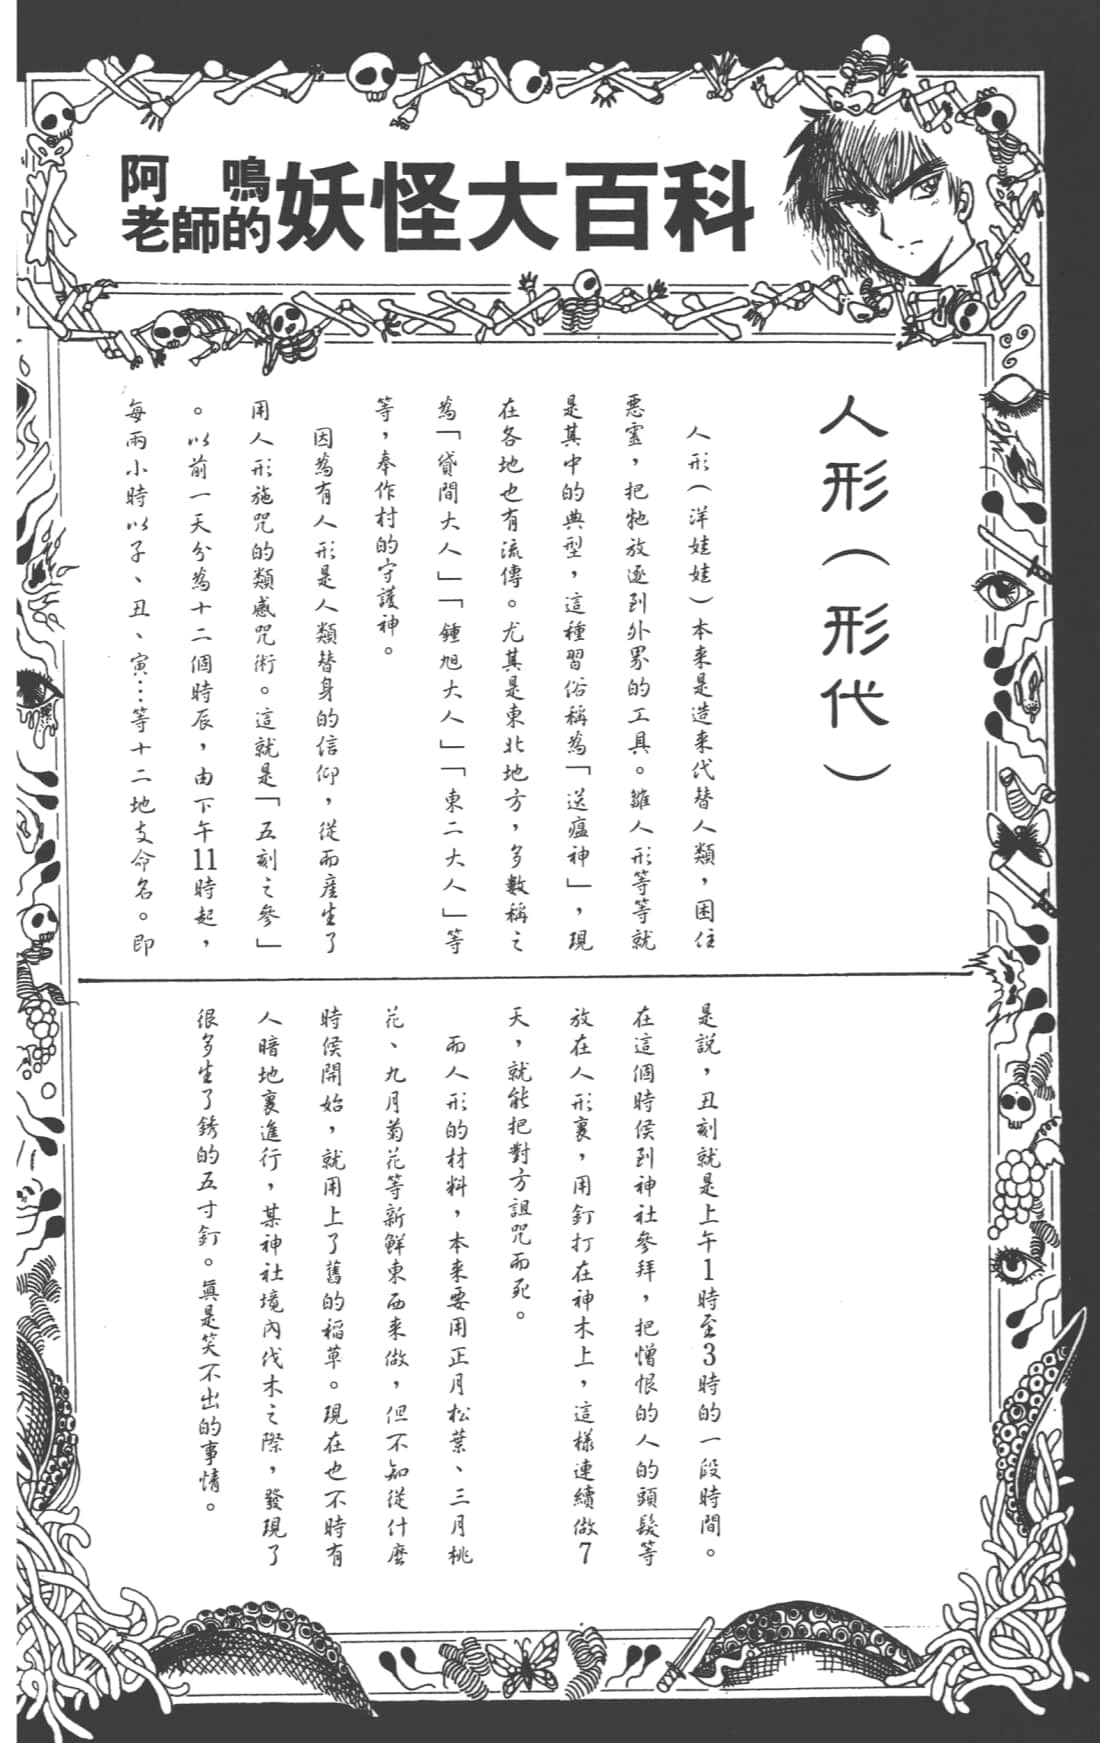 阿鳴
老師的妖怪大百科
人形（形代）
人形（洋娃娃）本來是造來代替人類，困住
惡靈，把牠放逐到外界的工具。雛人形等等就
是其中的典型，這種習俗稱為「送瘟神」，現
在各地也有流傳。尤其是東北地方，多數稱之
為「貸間大人」「鍾旭大人」「東二大人」等
等，奉作村的守護神。
因為有人形是人類替身的信仰，從而產生了
用人形施咒的類感咒術。這就是「五刻之參」
。以前一天分為十二個時辰，由下午11時起，
每兩小時以子、丑、寅…等十二地支命名。即
是說，丑刻就是上午1時至3時的一段時間。
在這個時侯到神社參拜，把憎恨的人的頭髮等
放在人形裏，用釘打在神木上，這樣連續做7
天，就能把對方詛咒而死。
而人形的材料，本來要用正月松葉、三月桃
花、九月菊花等新鮮東西來做，但不知從什麼
時侯開始，就用上了舊的稻草。現在也不時有
人暗地裏進行，某神社境內伐木之際，發現了
很多生了銹的五寸釘。真是笑不出的事情。